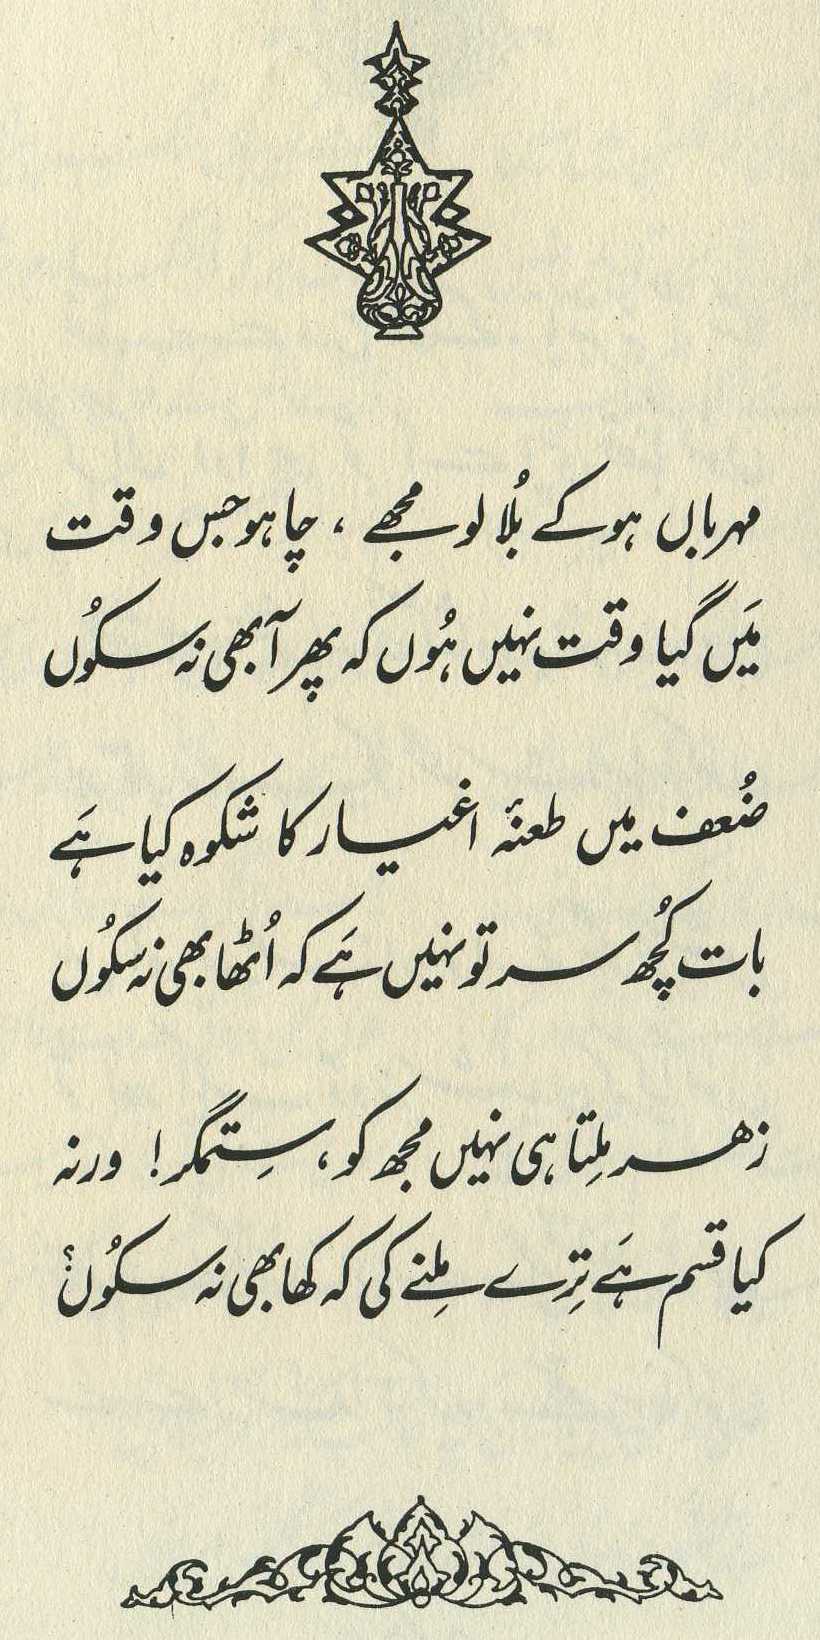 مہرباں ہو کے بُلا لو مجھے ، چاہو جس وقت
مَیں گیا وقت نہیں ہُوں کہ پھر آ بھی نہ سکُوں
ضُعف میں طعنۂ اغیار کا شکوہ کیا ہَے
بات کُچھ سر تو نہیں ہَے کہ اُٹھا بھی نہ سکُوں
زہر مِلتا ہی نہیں مجھ کو، سِتمگر! ورنہ
کیا قسم ہَے تِرے مِلنے کی کہ کھا بھی نہ سکُوں؟